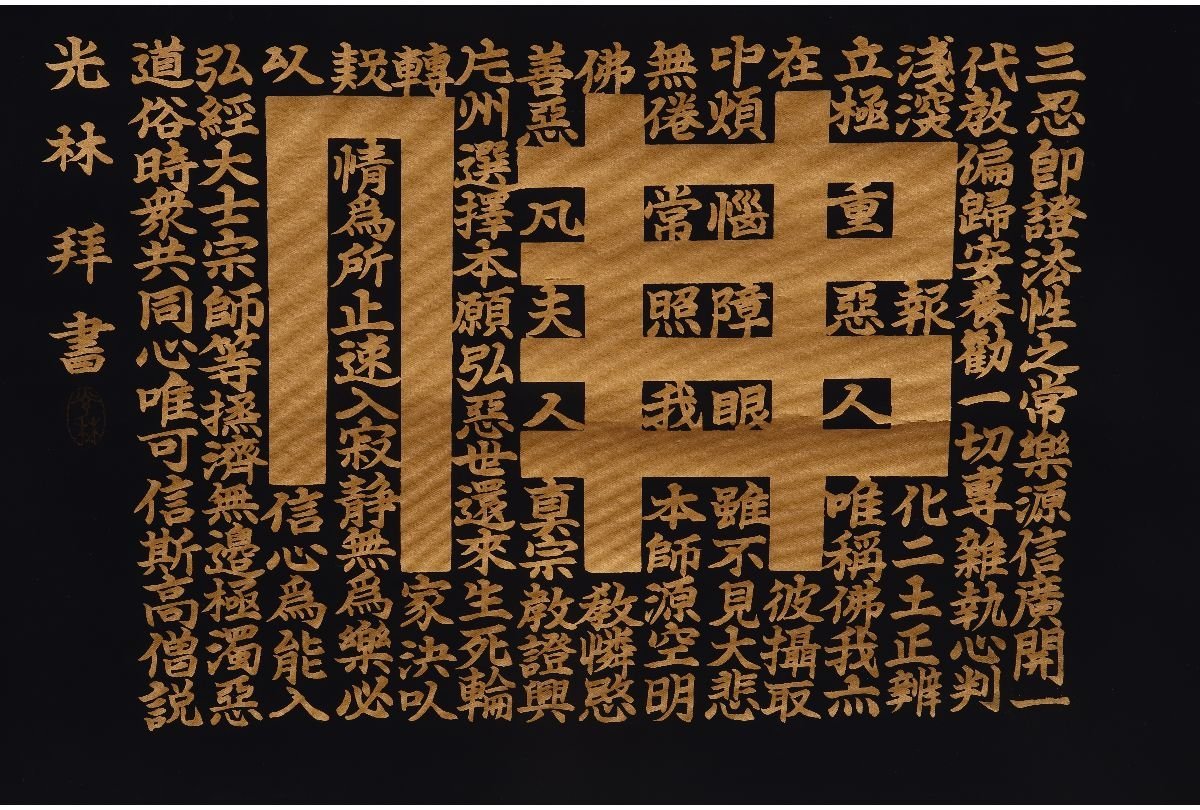 三忍卽證法性之常樂源信廣開一
代教偏歸安養勸一切專雜執心判
淺深報化二土正辨
立極重惡人唯稱佛我亦
在彼攝取
中煩惱障眼雖不見大悲
無倦常照我本師源空明
佛教憐愍
善惡凡夫人真宗教證興
片州選擇本願弘惡世還來生死輪
轉家決以
疑情爲所止速入寂静無爲樂必
以信心爲能入
弘經大士宗師等拯濟無邊極濁惡
道俗時衆共同心唯可信斯高僧説
光林拜書